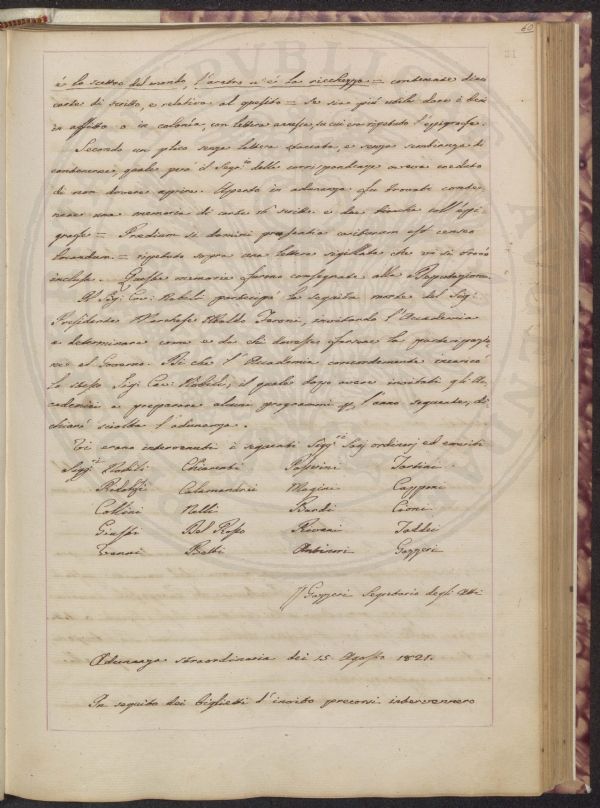 60
é lo scettro del mondo, l'aratro n'é la ricchezza = contenente dieci
carte di scritto, e relativa al quesito = se sia più utile dare i beni
in affitto o in colonìa, con lettera annessa, su cui era ripetuta l'epigrafe.
Secondo un plico senza lettera staccata, e senza sembianza di
contenerne, quale però il Seg.rio delle corrispondenze aveva creduto
di non dovere aprire. Aperto in adunanza fu trovato conte-
nere una memoria di carte 16 scritte e due bianche coll'epi-
grafe = Praedium se domini praesentia
= ripetuta sopra una lettera sigillata che vi si trovò
inclusa. Queste memorie furono consegnate alla Deputazione.
Il Sig. Cav. Nobili partecipò la seguita morte del Sig.
Presidente Marchese Ubaldo Feroni, invitando l'Accademia
a determinare come e da chi dovesse farsene la partecipazio-
ne al Governo. Di che l'Accademia concordemente incaricò
lo stesso Sig. Cav. Nobili, il quale dopo avere invitati gli Ac-
cademici a preparare alcuni programmi p. l'anno seguente, di-
chiarò sciolta l'adunanza.
Vi erano intervenuti i seguenti Sigg.ri Socj ordinarj ed emeriti
Sigg.ri Nobili Chiarenti Passerini Tartini
Ridolfi Calamandrei Magini Capponi
Collini Nelli Bardi Cioni
Giusti Del Rosso Rivani Taddei
Vanni Betti Antinori Gazzeri
G. Gazzeri Segretario degli Atti
Adunanza straordinaria dei 15 Agosto 1821.
In seguito dei biglietti d'invito precorsi intervennero